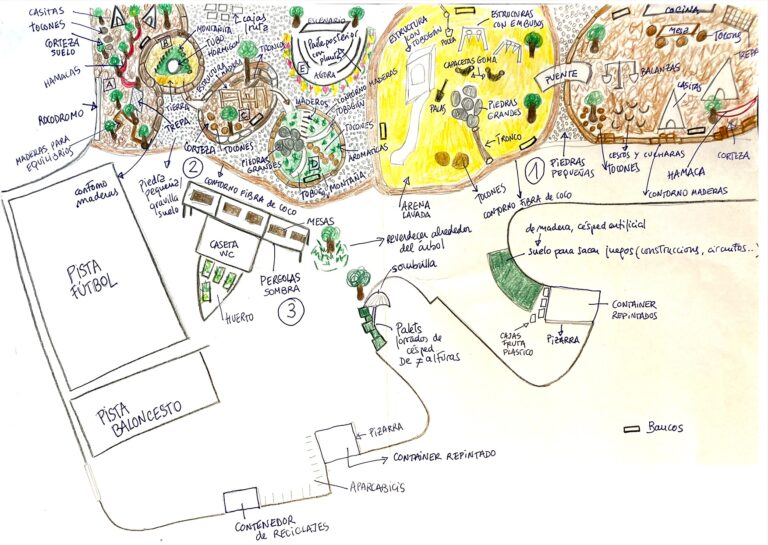 CASITAS
TOCONES
CORTEZA
SUELO
HAMACAS
A
ROCÓDROMO
MADERAS PARA
EQUILIBRIOS
MONTAÑITA
TUBO
HORMIGÓN
B
TIERRA
TREPA
CAJAS
FRUTA
TRONCO
ESTRUCTURA
MADERA
C
CORTEZA
TOCONES
ESCENARIO
Pale posterior
con plantas
E
ÁGORA
MADEROS
CONTORNO MADERAS
TOBOGÁN
TOCONES
AROMÁTICAS
D
PIEDRAS
GRANDES
TUBO
MONTAÑA
ESTRUCTURA
CON
TOBOGÁN
POLEA
ESTRUCTURAS
CON EMBUDOS
CAPACETAS GOMA
PALAS
PIEDRAS
GRANDES
TRONCO
ARENA
LAVADA
TOCONES
PUENTE
1
PIEDRAS
PEQUEÑAS
COCINA
MESA
TOCONES
BALANZAS
CASITAS
CESTOS Y CUCHARAS
TOCONES
HAMACA
CORTEZA
CONTORNO MADERAS
CONTORNO FIBRA DE COCO
contorno
maderas
Piedra
pequeña/
gravilla
suelo
2
CONTORNO FIBRA DE COCO
MESAS
CASETA
WC
PERGOLAS
SOMBRA
3
HUERTO
reverdecer alrededor
del árbol
sombrilla
Palets
forrados de
césped
DE ≠ alturas
de madera, césped artificial
suelo para sacar juegos (construccions, circuitos...)
CONTAINER
REPINTADOS
CAJAS
FRUTA
PLASTICO
PIZARRA
PISTA
FÚTBOL
PISTA
BALONCESTO
PIZARRA
CONTAINER REPINTADO
APARCABICIS
CONTENEDOR
de RECICLAJES
Bancos